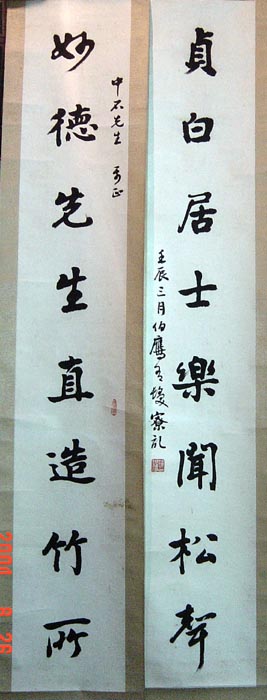 貞白居士樂聞松聲
壬辰三月伯鷹
妙德先生直造竹所
中石先生
2004 8 26